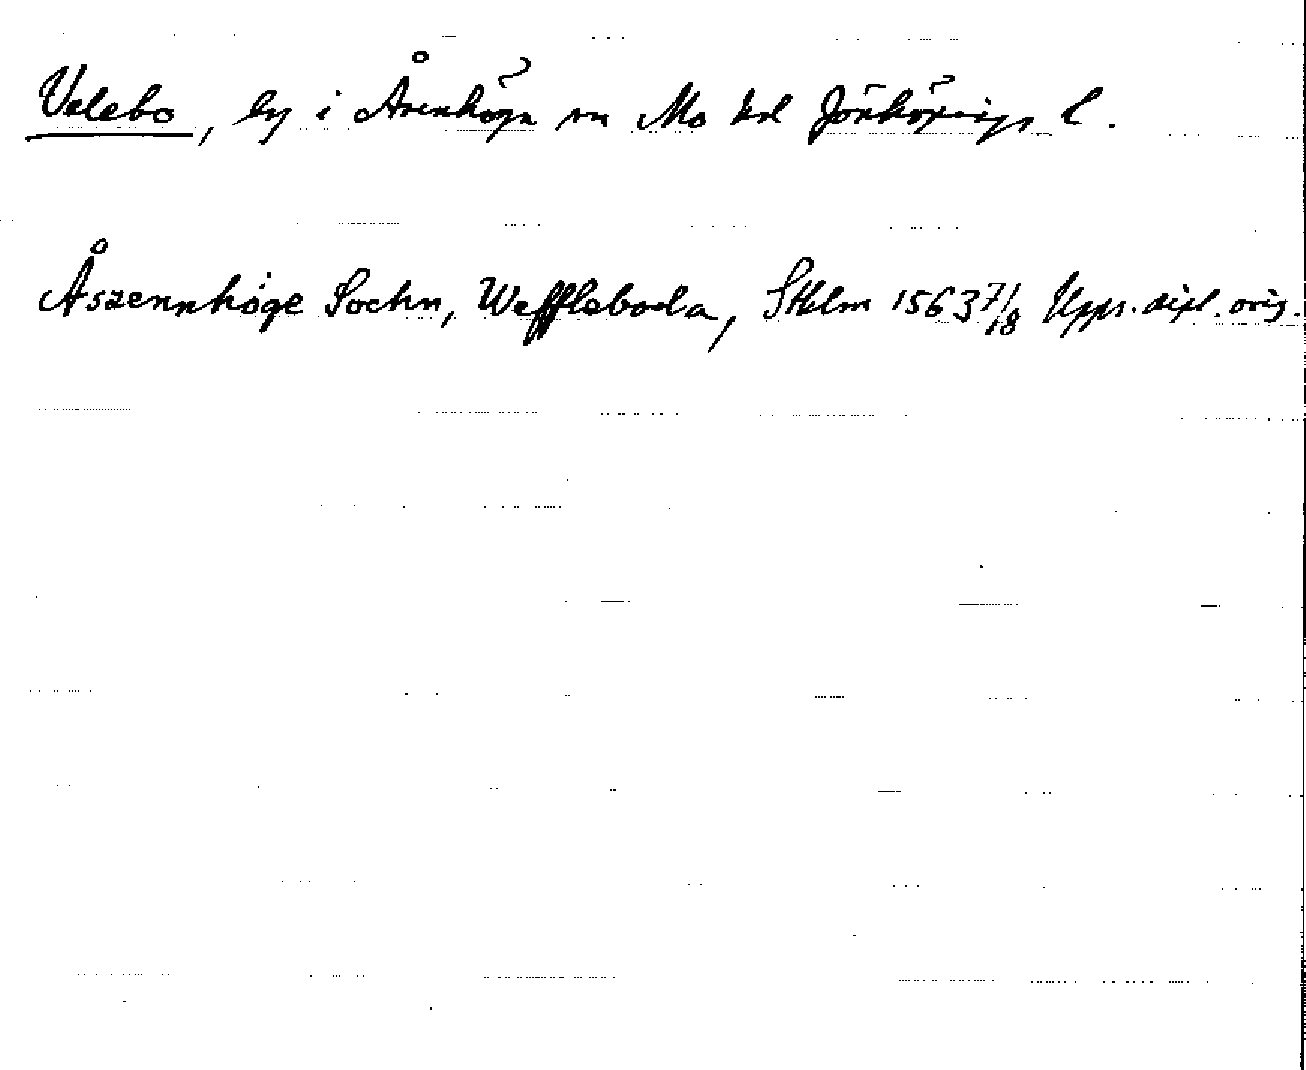 Valebo, by i Åsenhöga sn Mo hd Jönköpings l.
Åszennhöge Sochn, Wefflaboda, Sthlm 1563 7/8 Upps. dipl. orig.